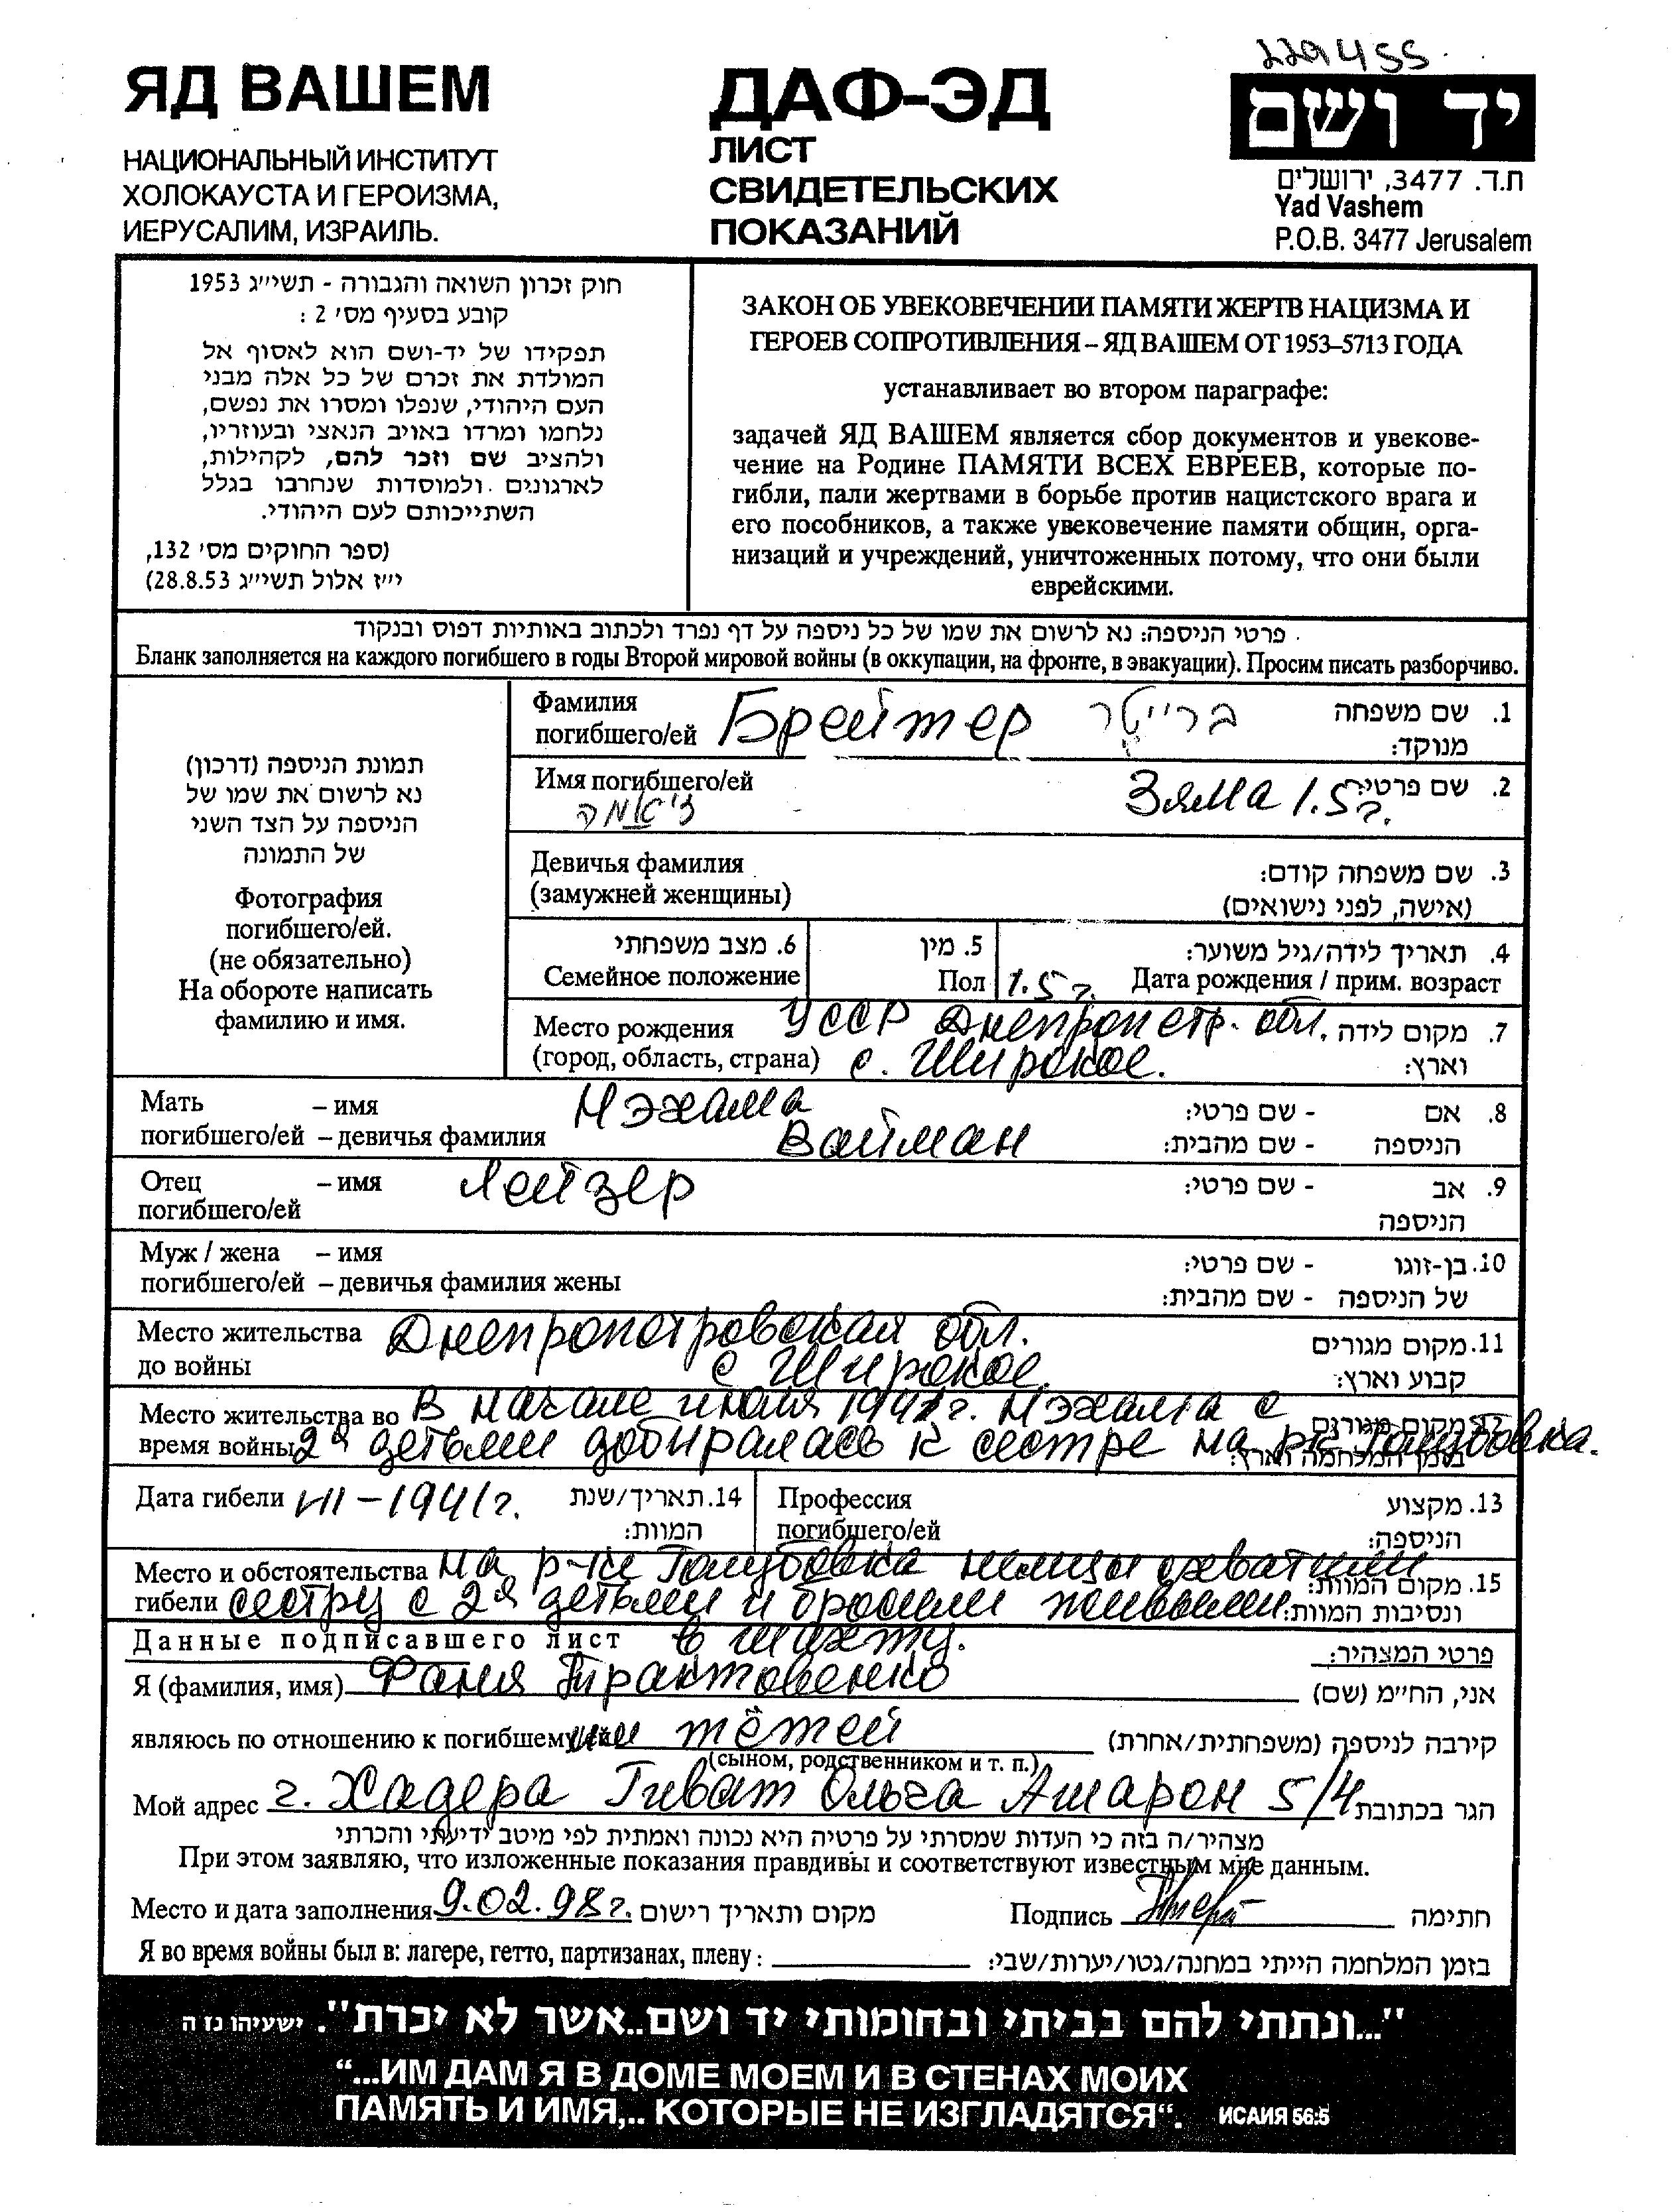 229455
ЯД ВАШЕМ
НАЦИОНАЛЬНЫЙ ИНСТИТУТ
ХОЛОКАУСТА И ГЕРОИЗМА,
ИЕРУСАЛИМ, ИЗРАИЛЬ.
ДАФ-ЭД
ЛИСТ
СВИДЕТЕЛЬСКИХ
ПОКАЗАНИЙ
יד ושם
ת.ד. 3477, ירושלים
Yad Vashem
P.O.B. 3477 Jerusalem
חוק זכרון השואה והגבורה - תשי״ג 1953
קובע בסעיף מס׳ 2 :
תפקידו של יד-ושם הוא לאסוף אל
המולדת את זכרם של כל אלה מבני
העם היהודי, שנפלו ומסרו את נפשם,
נלחמו ומרדו באויב הנאצי ובעוזריו,
ולהציב שם וזכר להם, לקהילות,
לארגונים ולמוסדות שנחרבו בגלל
השתייכותם לעם היהודי.
(ספר החוקים מס׳ 132,
י״ז אלול תשי״ג 28.8.53)
ЗАКОН ОБ УВЕКОВЕЧЕНИИ ПАМЯТИ ЖЕРТВ НАЦИЗМА И
ГЕРОЕВ СОПРОТИВЛЕНИЯ – ЯД ВАШЕМ ОТ 1953–5713 ГОДА
устанавливает во втором параграфе:
задачей ЯД ВАШЕМ является сбор документов и увекове-
чение на Родине ПАМЯТИ ВСЕХ ЕВРЕЕВ, которые по-
гибли, пали жертвами в борьбе против нацистского врага и
его пособников, а также увековечение памяти общин, орга-
низаций и учреждений, уничтоженных потому, что они были
еврейскими.
פרטי הניספה: נא לרשום את שמו של כל ניספה על דף נפרד ולכתוב באותיות דפוס ובנקוד
Бланк заполняется на каждого погибшего в годы Второй мировой войны (в оккупации, на фронте, в эвакуации). Просим писать разборчиво.
תמונת הניספה (דרכון)
נא לרשום את שמו של
הניספה על הצד השני
של התמונה
Фотография
погибшего/ей.
(не обязательно)
На обороте написать
фамилию и имя.
Фамилия
погибшего/ей Брейтер ברייטר
1. שם משפחה
מנוקד:
Имя погибшего/ей Зяма 1.5г. 2. שם פרטי:
זיאמה
Девичья фамилия
(замужней женщины)
3. שם משפחה קודם:
(אישה, לפני נישואים)
6. מצב משפחתי
Семейное положение
5. מין
Пол
4. תאריך לידה/גיל משוער:
1.5г. Дата рождения / прим. возраст
Место рождения УССР Днепропетр. обл. 7. מקום לידה
(город, область, страна) с. Широкое. וארץ:
Мать – имя Мэхама 8. אם - שם פרטי:
погибшего/ей – девичья фамилия Вайман הניספה - שם מהבית:
Отец – имя Лейзер 9. אב - שם פרטי:
погибшего/ей הניספה
Муж / жена – имя 10. בן-זוגו - שם פרטי:
погибшего/ей – девичья фамилия жены של הניספה - שם מהבית:
Место жительства Днепропетровская обл. 11. מקום מגורים
до войны с Широкое. קבוע וארץ:
Место жительства во В начале июля 1941г. Мэхама с מקום מגורים
время войны 2я детьми добиралась к сестре на р-к Голубовка. בזמן המלחמה וארץ:
Дата гибели VII-1941г. 14. תאריך/שנת
המוות:
Профессия 13. מקצוע
погибшего/ей הניספה:
Место и обстоятельства На р-ке Голубовка немцы схватили 15. מקום המוות:
гибели сестру с 2я детьми и бросили живыми ונסיבות המוות:
Данные подписавшего лист в шахту. פרטי המצהיר:
Я (фамилия, имя) Фаня Трактовенко אני, החי״מ (שם)
являюсь по отношению к погибшему/ей тётей קירבה לניספה (משפחתית/אחרת)
(сыном, родственником и т. п.)
Мой адрес г. Хадера Гиват Ольга Ашарон 5/4 הגר בכתובת
מצהיר/ה בזה כי העדות שמסרתי על פרטיה היא נכונה ואמתית לפי מיטב ידיעתי והכרתי
При этом заявляю, что изложенные показания правдивы и соответствуют известным мне данным.
Место и дата заполнения 9.02.98г. מקום ותאריך רישום Подпись חתימה
Я во время войны был в: лагере, гетто, партизанах, плену: בזמן המלחמה הייתי במחנה/גטו/יערות/שבי:
"...ונתתי להם בביתי ובחומותי יד ושם..אשר לא יכרת". ישעיהו נז ה
“...ИМ ДАМ Я В ДОМЕ МОЕМ И В СТЕНАХ МОИХ
ПАМЯТЬ И ИМЯ,.. КОТОРЫЕ НЕ ИЗГЛАДЯТСЯ“. ИСАИЯ 56:5